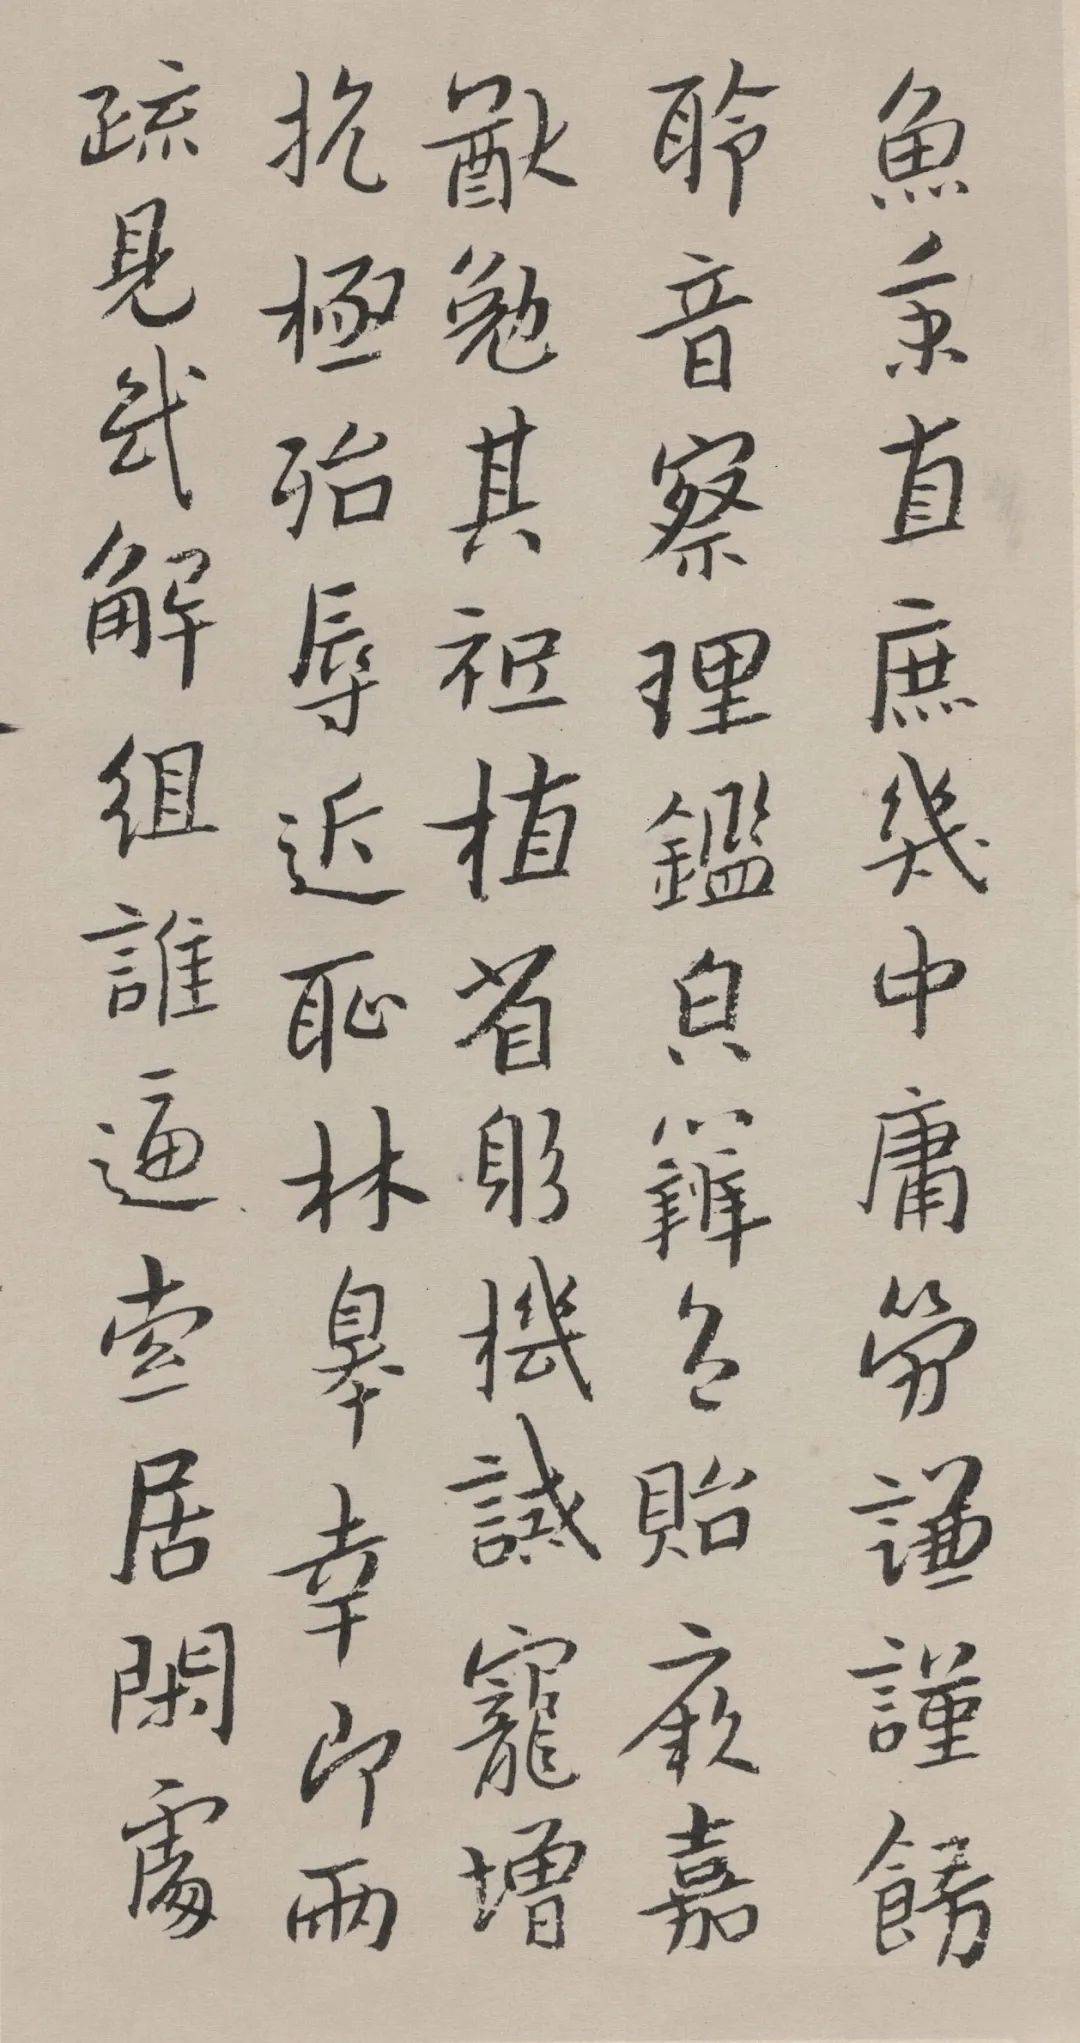 魚秉直庶幾中庸勞謙謹飭
聆音察理鑑皃辯色貽厥嘉
猷勉其祗植省躬機誡寵增
抗極殆辱近恥林皋幸即兩
疏見機解組誰逼索居閑處